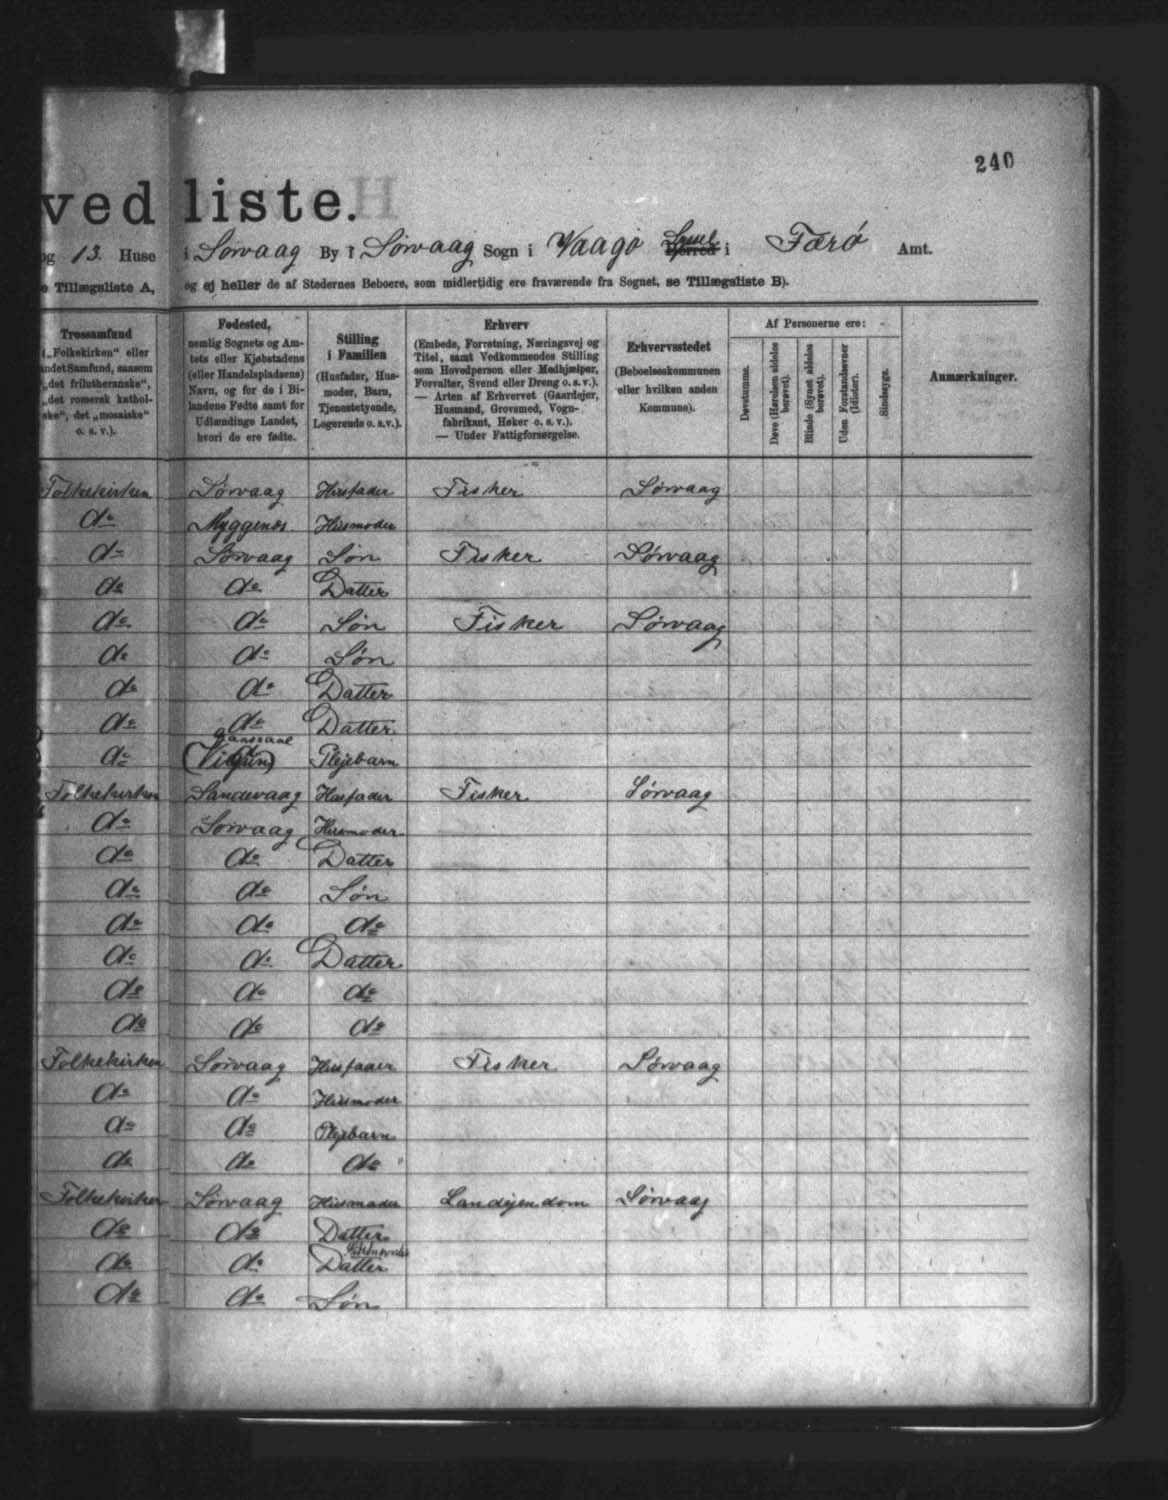 240
ved liste.
og 13. Huse i Sørvaag By i Sørvaag Sogn i Vaagø Herred i Færø Amt.
e Tillægsliste A, og ej heller de af Stedernes Beboere, som midlertidig ere fraværende fra Sognet, se Tillægsliste B).
Trossamfund
(„Folkekirken“ eller
andet Samfund, saasom
„det frilutheranske“,
„det romersk kathol-
ske“, det „mosaiske“
o. s. v.).
Fødested,
nemlig Sognets og Am-
tets eller Kjøbstadens
(eller Handelspladsens)
Navn, og for de i Bi-
landene Fødte samt for
Udlændinge Landet,
hvori de ere fødte.
Stilling
i Familien
(Husfader, Hus-
moder, Barn,
Tjenestetyende,
Logerende o. s. v.).
Erhverv
(Embede, Forretning, Næringsvej og
Titel, samt Vedkommendes Stilling
som Hovedperson eller Medhjælper,
Forvalter, Svend eller Dreng o. s. v.).
— Arten af Erhvervet (Gaardejer,
Husmand, Grovsmed, Vogn-
fabrikant, Høker o. s. v.).
— Under Fattigforsørgelse.
Erhvervsstedet
(Beboelseskommunen
eller hvilken anden
Kommune).
Af Personerne ere:
Døvstumme.
Døve (Hørelsen aldeles
berøvet).
Blinde (Synet aldeles
berøvet).
Uden Forstandsevner
(Idioter).
Sindssyge.
Anmærkninger.
Folkekirken Sørvaag Husfader Fisker Sørvaag
do Myggenæs Husmoder
do Sørvaag Søn Fisker Sørvaag
do do Datter
do do Søn Fisker Sørvaag
do do Søn
do do Datter
do do Datter
do Plejebarn
Folkekirken Sandevaag Husfader Fisker Sørvaag
do Sørvaag Husmoder
do do Datter
do do Søn
do do do
do do Datter
do do do
do do do
Folkekirken Sørvaag Husfader Fisker Sørvaag
do do Husmoder
do do Plejebarn
do do do
Folkekirken Sørvaag Husmoder Landejendom Sørvaag
do do Datter
do do Datter
do do Søn